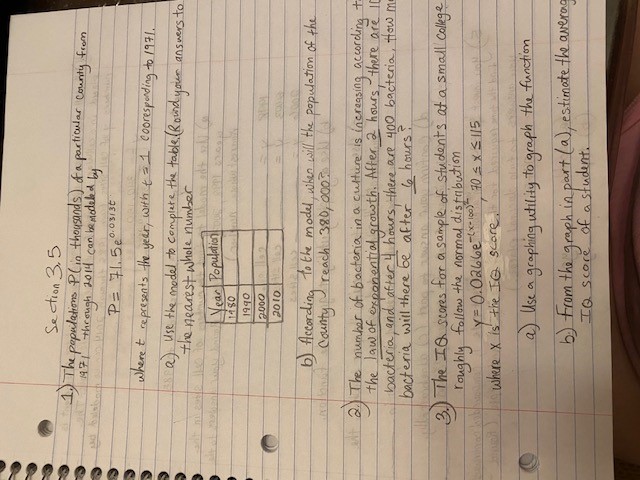 Section 3.5
1.) The populations P (in thousands) of a particular county from
1971 through 2014 can be modeled by
P = 71.5e^0.0313t
where t represents the year, with t = 1 cooresponding to 1971.
a) Use the model to complete the table. (Round your answers to
the nearest whole number
Year Population
1980
1990
2000
2010
b) According to the model, when will the population of the
County reach 380,000?
2.) The number of bacteria in a culture is increasing according
the law of exponential growth. After 2 hours there are
bacteria and after 4 hours, there are 400 bacteria, How
bacteria will there be after 6 hours?
3.) The IQ scores for a sample of students at a small College
roughly follow the normal distribution
70 ≤ x ≤ 115
where x is the IQ score.
a) Use a graphing utility to graph the function
b) From the graph in part (a), estimate the
IQ score of a student.